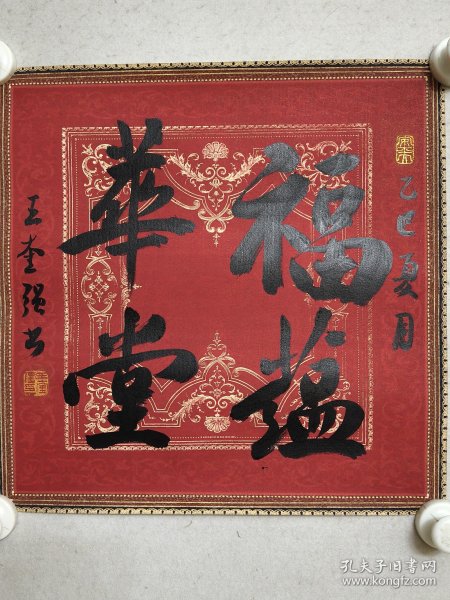 乙巳夏月
福蕴
華堂
王奎强书
孔夫子旧书网
www.kongfz.com